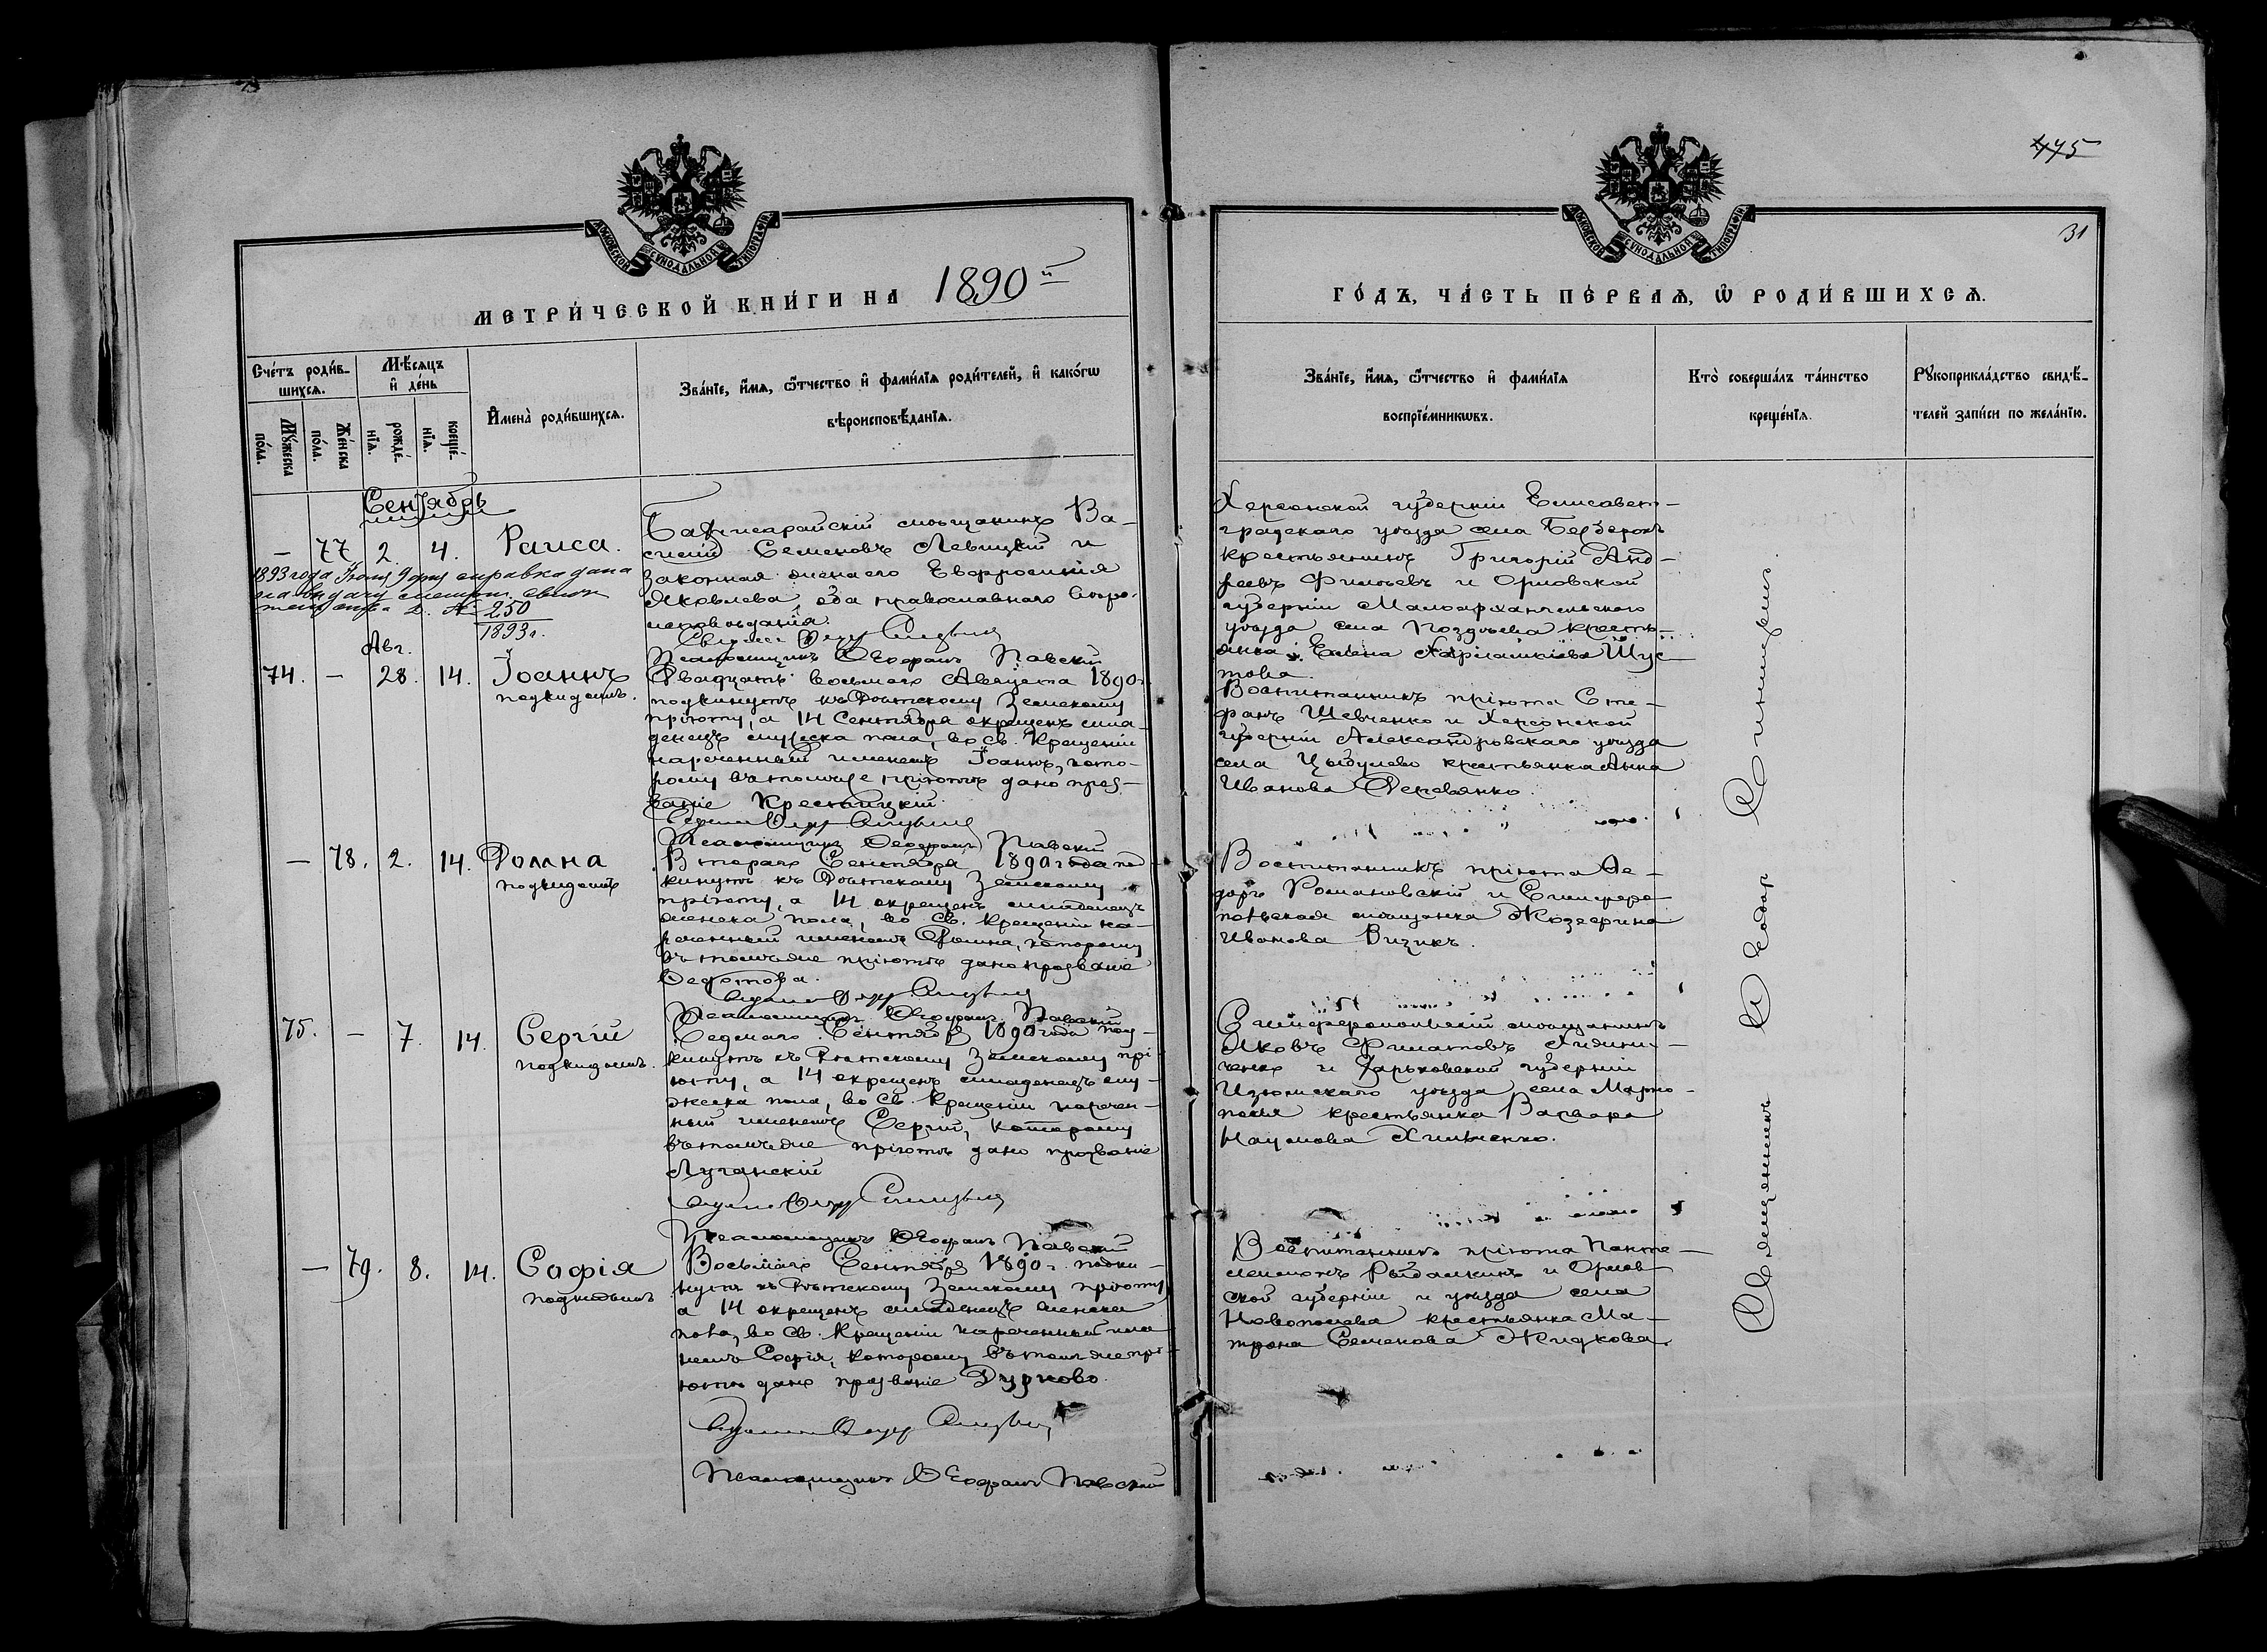 475
31
МОСКОВСКОЙ СѴНОДАЛЬНОЙ ТИПОГРАФІИ
МОСКОВСКОЙ СѴНОДАЛЬНОЙ ТИПОГРАФІИ
МЕТРИ́ЧЕСКОЙ КНИ́ГИ НА 1890й
ГО́ДЪ, ЧА́СТЬ ПЕ́РВАѦ, Ѽ РОДИ́ВШИХСѦ.
Сче́тъ роди́в-
шихся.
Мѣ́сяцъ
и҆ де́нь
Мꙋ́жеска
по́ла.
Же́нска
по́ла.
рожде́-
нїя.
креще́-
нїя.
И҆мена̀ роди́вшихся.
Зва́нїе, и҆́мя, ѻ҆́тчество и҆ фами́лїя роди́телей, и҆ како́гѡ
вѣроисповѣ́данїя.
Зва́нїе, и҆́мя, ѻ҆́тчество и҆ фами́лїя
воспрїе́мникѡвъ.
Кто̀ соверша́лъ та́инство
креще́нїя.
Рꙋкоприкла́дство свидѣ́-
телей за́писи по жела́нїю.
Сентябрь
— 77 2. 4. Раиса.
1893 года справка дана
250
1893 г.
Бахчисарайскій мѣщанинъ Ва-
силій Семеновъ Левицкій и
законная жена его Евфросинія
Яковлева, оба православнаго вѣро-
исповѣданія.
Псаломщикъ Ѳеофанъ Павскій
Херсонской губерніи Елисавет-
градскаго уѣзда села
крестьянинъ Григорій Анд-
реевъ и Орловской
губерніи Малоархангельскаго
уѣзда села Поздѣева кресть-
янка Елена Шус-
това.
Авг.
74. — 28. 14. Іоаннъ
подкидышъ.
Двадцать восьмаго Августа 1890 г.
подкинутъ къ Дѣтскому Земскому
пріюту, а 14 Сентября окрещенъ мла-
денецъ мужеска пола, во Св. Крещеніи
нареченный именемъ Іоаннъ, кото-
рому въ томъ же пріютѣ дано проз-
ваніе Крестицкій.
Псаломщикъ Ѳеофанъ Павскій
Воспитанникъ пріюта Сте-
фанъ Шевченко и Херсонской
губерніи Александровскаго уѣзда
села Цыбулево крестьянка Анна
Иванова Деревянко.
— 78. 2. 14. Домна
подкидышъ
Втораго Сентября 1890 года под-
кинутъ къ Дѣтскому Земскому
пріюту, а 14 окрещенъ младенецъ
женска пола, во Св. Крещеніи на-
реченный именемъ Домна, которому
въ томъ же пріютѣ дано прозваніе
Ѳедотова.
Псаломщикъ Ѳеофанъ Павскій
Воспитанникъ пріюта Ѳе-
доръ Романовскій и Симферо-
польская мѣщанка
Иванова Визикъ.
75. — 7. 14. Сергій
подкидышъ.
Седмаго Сентября 1890 года под-
кинутъ къ Дѣтскому Земскому прі-
юту, а 14 окрещенъ младенецъ му-
жеска пола, во Св. Крещеніи наречен-
ный именемъ Сергій, которому
въ томъ же пріютѣ дано прозваніе
Луганскій
Псаломщикъ Ѳеофанъ Павскій
Симферопольскій мѣщанинъ
Яковъ Филатовъ
и Харьковской губерніи
Изюмскаго уѣзда села
крестьянка Варвара
Наумова Хильченко.
— 79. 8. 14. Софія
подкидышъ
Восьмаго Сентября 1890 г. подки-
нутъ къ Дѣтскому Земскому пріюту,
а 14 окрещенъ младенецъ женска
пола, во Св. Крещеніи нареченный име-
немъ Софія, которому въ томъ же прі-
ютѣ дано прозваніе Дурново.
Псаломщикъ Ѳеофанъ Павскій
Воспитанникъ пріюта Панте-
леимонъ Рыбалкинъ и Орлов-
ской губерніи и уѣзда села
крестьянка Ма-
трона Семенова Жидкова.
Священникъ Ѳеодоръ